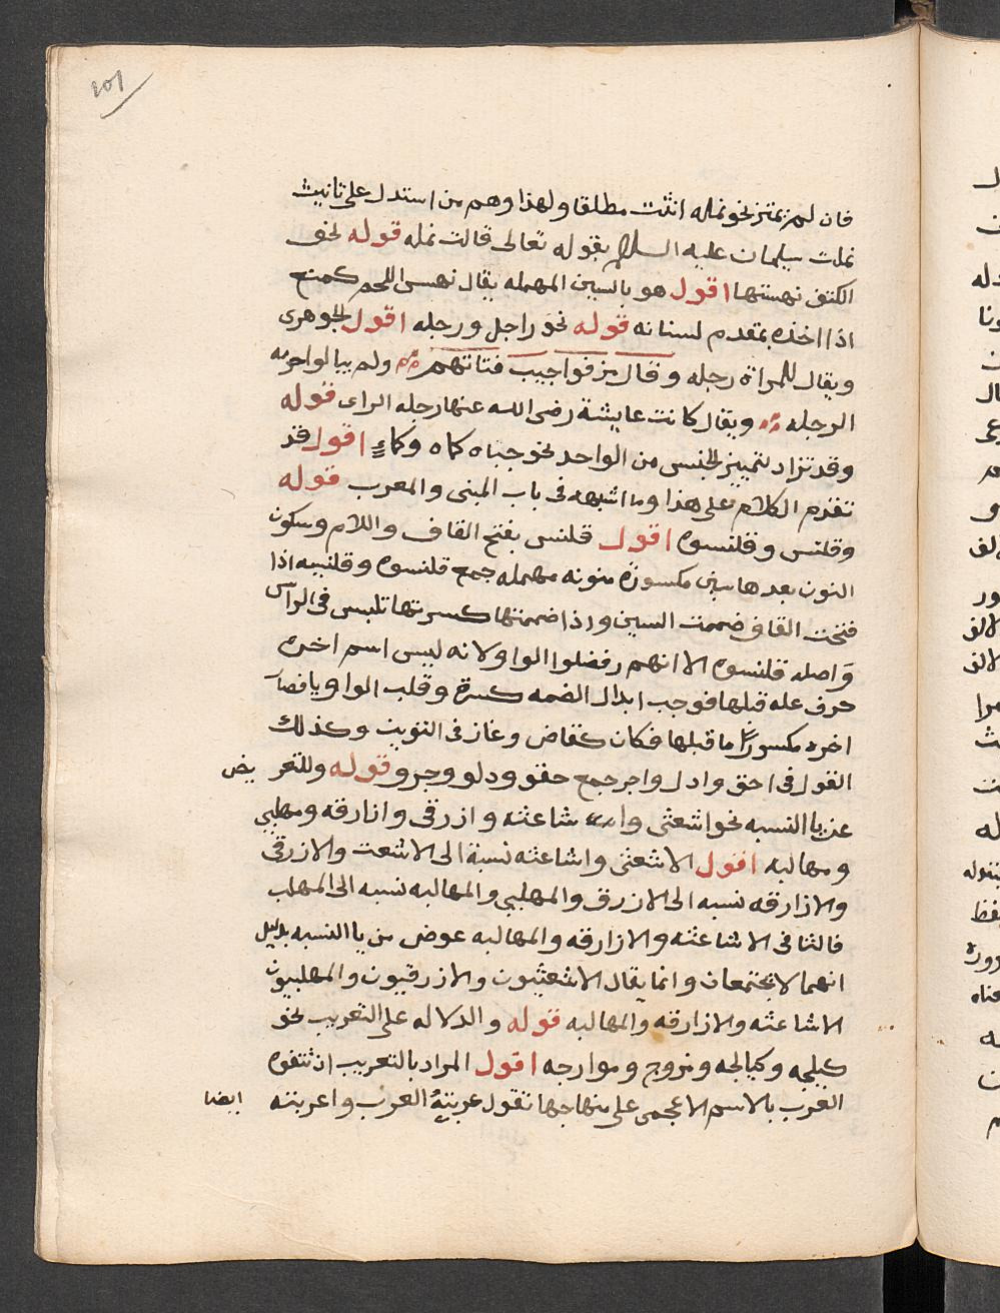 101
فان لم يمتز نحو نمله انثت مطلقا ولهذا وهم من استدل على تانيث
نملت سليمان عليه السلام بقوله تعالى قالت نمله قوله نحو
الكتف نهستها اقول هو بالسين المهمله يقال نهس اللحم كمنع
اذا اخذه بمقدم اسنانه قوله نحو راجل ورجله اقول الجوهرى
ويقال للمراة رجله وقال مزقوا جيب فتاتهم ولم يبالوا حرمه
الرجله ويقال كانت عايشة رضى الله عنها رجله الراى قوله
وقد تزاد لتمييز الجنس من الواحد نحو جباه كماه وكماء اقول قد
تقدم الكلام على هذا وما اشبهه فى باب المبنى والمعرب قوله
وقلنس وقلنسوه اقول قلنس بفتح القاف واللام وسكون
النون بعدها سين مكسورة منونه مهمله جمع قلنسوه وقلنسيه اذا
فتحت القاف ضممت السين واذا ضممتها كسرتها تلبس فى الراس
واصله قلنسوه الا انهم رفضلوا الواو لانه ليس اسم اخره
حرف عله قبلها فوجب ابدال الضمه كسرة وقلب الواو يا فصار
اخره مكسورًا ما قبلها فكان كقاض وغاز فى التنوين وكذلك
القول فى احق وادل واجر جمع حقو ودلو وجرو قوله وللتعو يض
عن يا النسبه نحو اشعثى و شاعثه وازرقى وانارقه ومهلبي
ومهالبه اقول الاشعثى واشاعثه نسبة الى الاشعت والازرقى
والازارقه نسبه الى الازرق والمهلبي والمهالبه نسبه الى المهلب
فالتا فى الاشاعثه والازارقه والمهالبه عوض من يا النسبه بدليل
انهما لا يجتمعان وانما يقال الاشعثيون والازرقيون والمهلبيون
الاشاعثه والازارقه والمهالبه قوله والدلاله على التعريب نحو
كيلجه وكيالجه وموزج وموارجه اقول المراد بالتعريب ان تتفوه
العرب بالاسم الاعجمى على منهاجها تقول عربته العرب واعربته ايضا